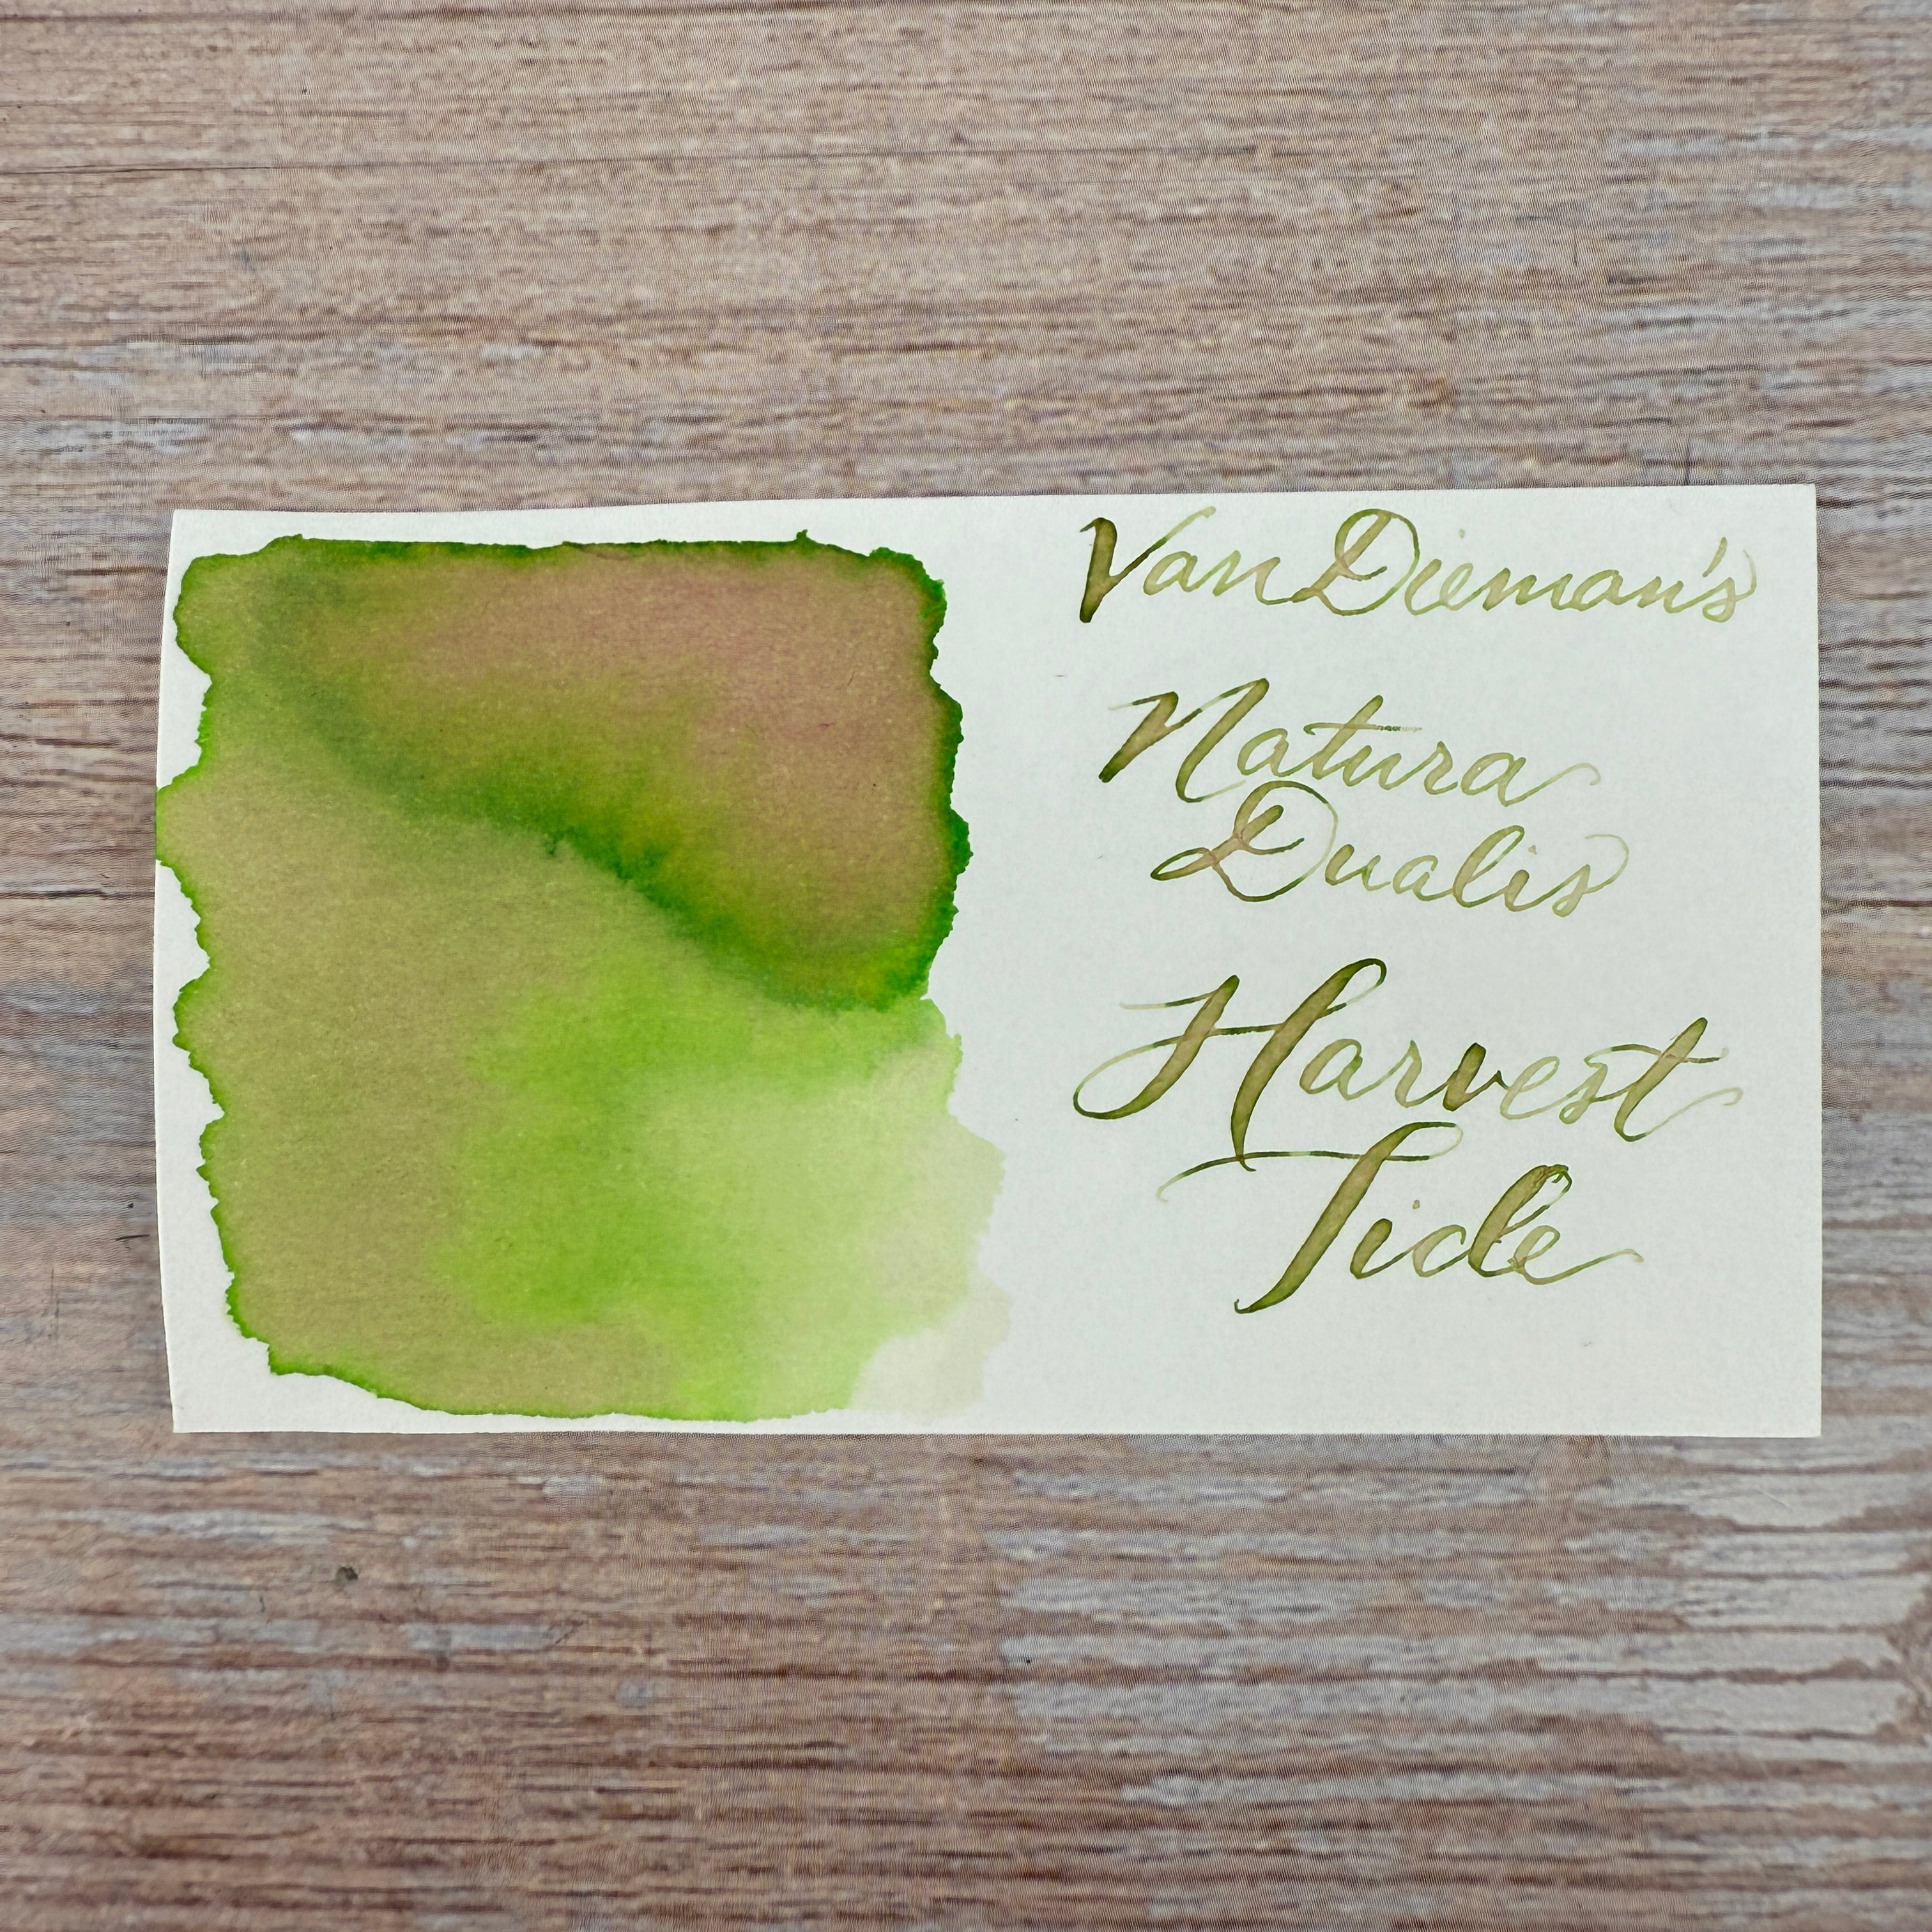 Van Dieman's
Natura
Dualis
Harvest
Tide